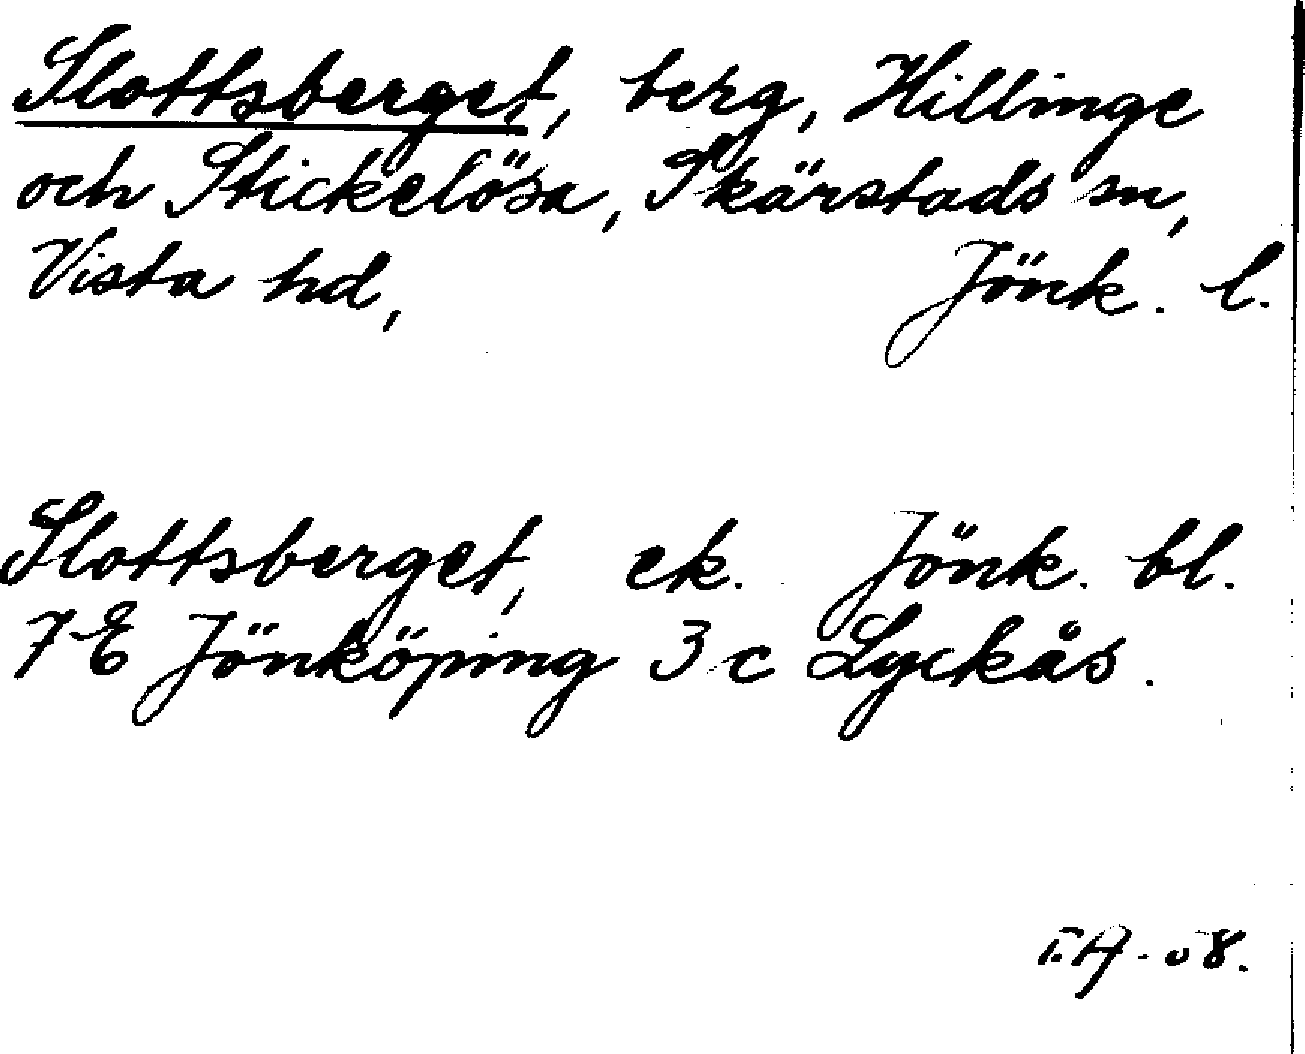 Slottsberget, berg, Hillinge
och Stickelösa, Skärstads sn,
Vista hd, Jönk. l.
Slottsberget, ek. Jönk. bl.
7 E Jönköping 3 c Lyckås.